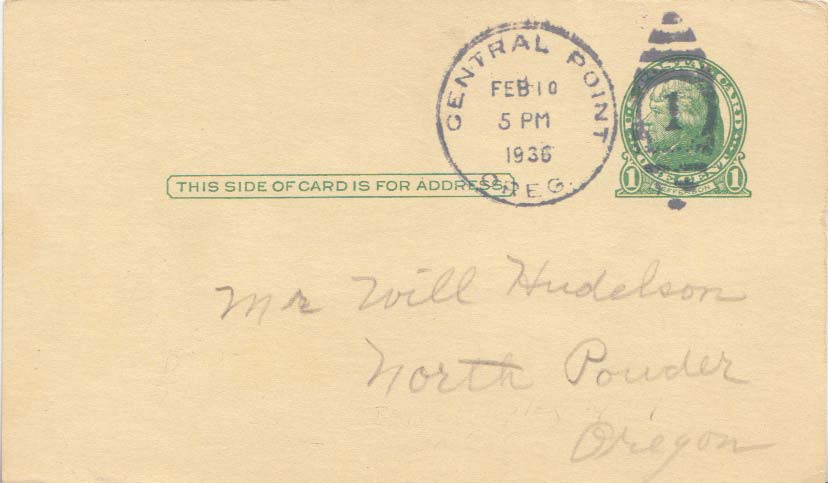 CENTRAL POINT
FEB 10
5 PM
1936
OREG.
U.S. POSTAL CARD
1
ONE CENT
1 JEFFERSON 1
THIS SIDE OF CARD IS FOR ADDRESS
Mr Will Hudelson
North Powder
Oregon